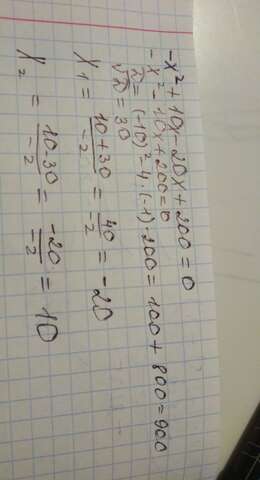 -x² + 10x - 20x + 200 = 0
-x² - 10x + 200 = 0
D = (-10)² - 4 · (-1) · 200 = 100 + 800 = 900
√D = 30
X₁ = 10 + 30 / -2 = 40 / -2 = -20
X₂ = 10 - 30 / -2 = -20 / -2 = 10